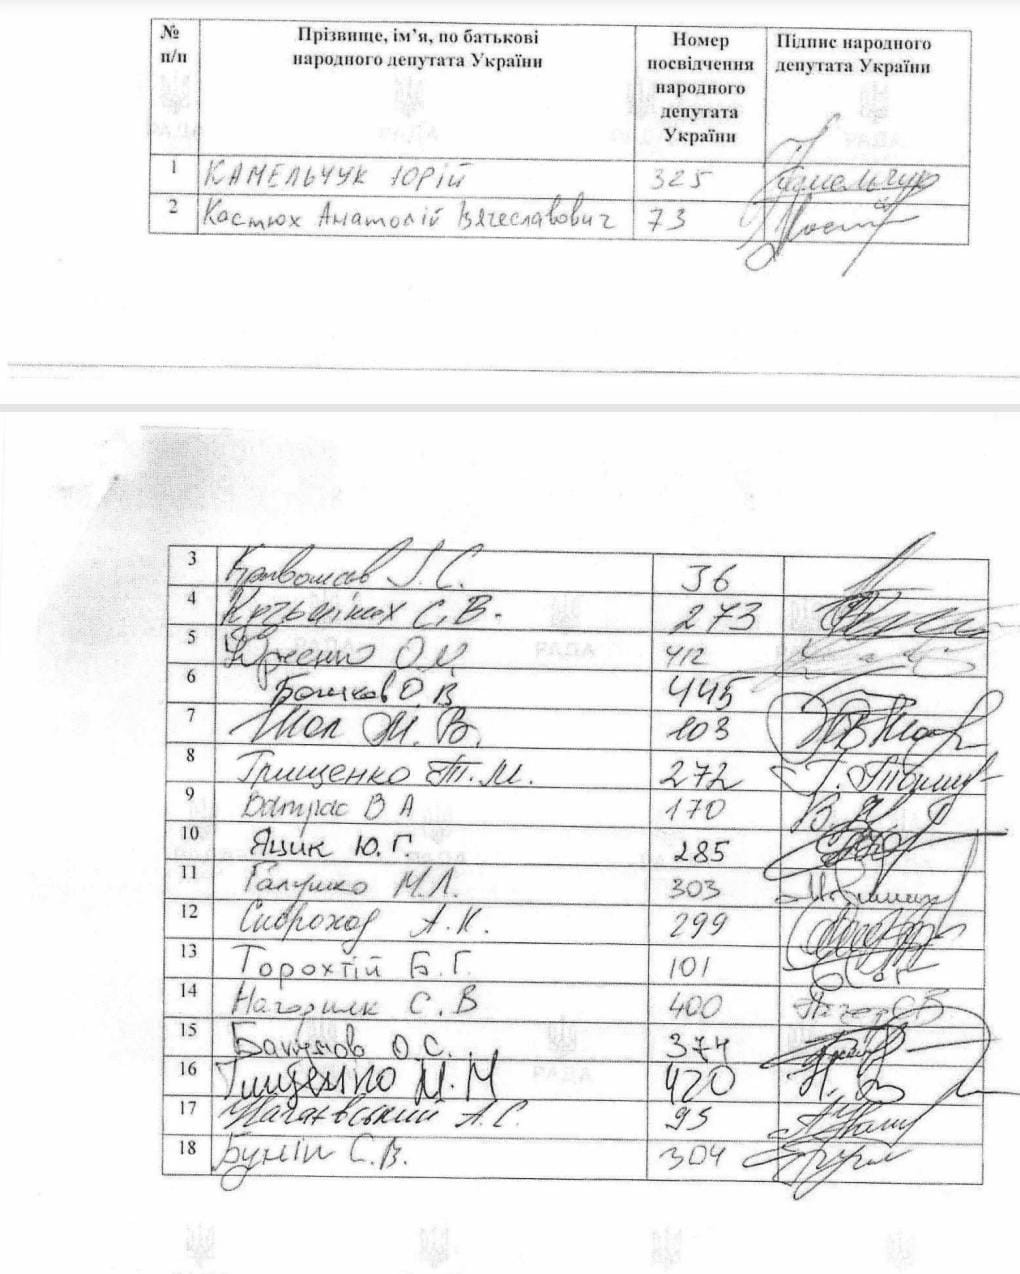 № п/п
Прізвище, ім’я, по батькові
народного депутата України
Номер
посвідчення
народного
депутата
України
Підпис народного
депутата України
1 КАМЕЛЬЧУК ЮРІЙ 325 Камельчук
2 Костюх Анатолій Вячеславович 73
3 І.С. 36
4 С.В. 273
5 412
6 О.В 445
7 М.В. 103
8 Грищенко Т.М. 272
9 Ватрас В А 170
10 Яцик Ю.Г. 285
11 Галушко М.Л. 303
12 Скороход А.К. 299
13 Торохтій Б.Г. 101
14 Нагорняк С.В 400
15 Бакумов О.С. 374
16 Тищенко М.М 420
17 Нагаєвський А.С. 95
18 Бунін С.В. 304
РАДА
РАДА
РАДА
РАДА